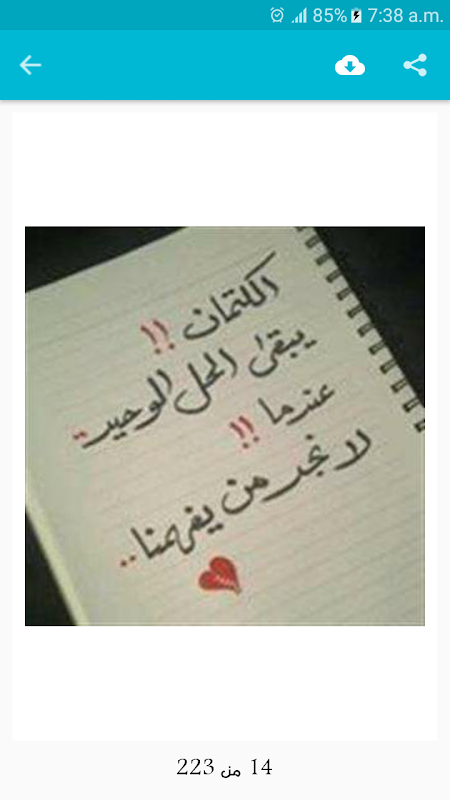 85% 7:38 a.m.
الكتمان !!
يبقى الحل الوحيد..
عندما !!
لا نجد من يفهمنا..
14 من 223